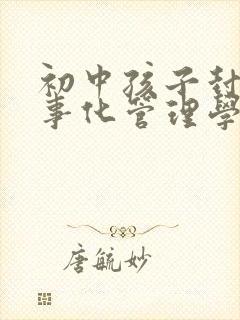 初中孩子封
事化管理學
唐毓妙